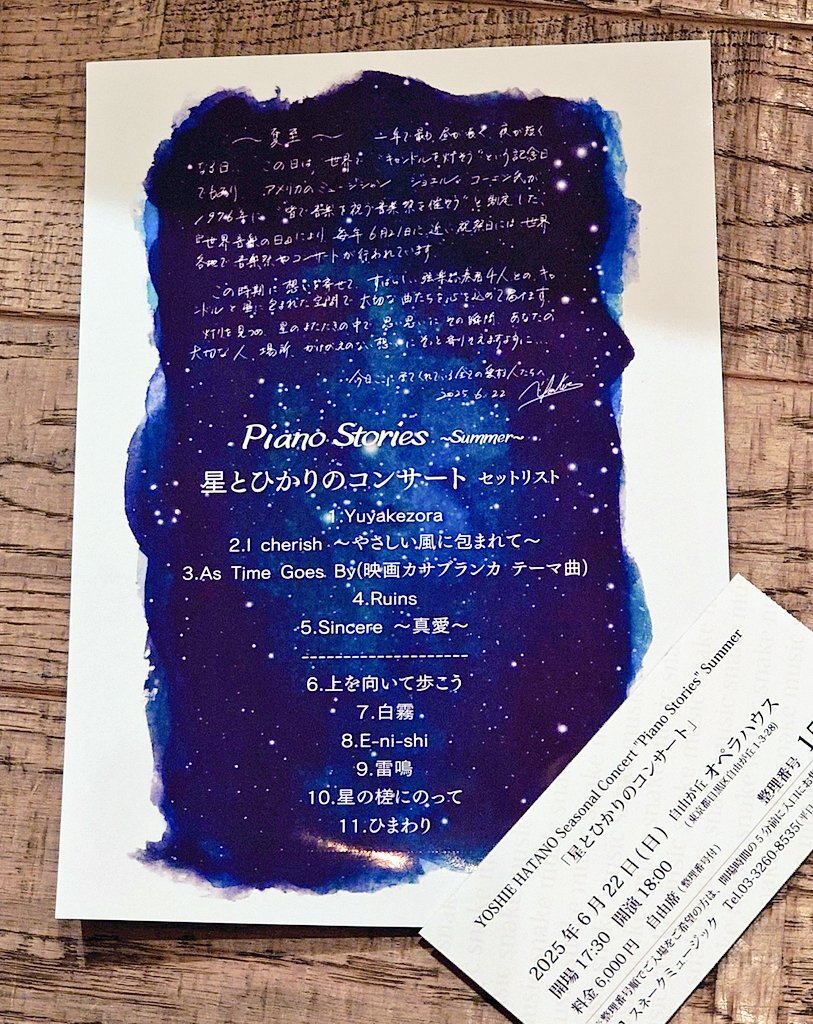 ～ 夏至 ～　二年で最も 昼が長く、夜が短く
なる日。この日は、世界で "キャンドルを灯そう" という記念日
でもあり　アメリカのミュージシャン　ジョエル・コーエン氏が
1976年に "皆で音楽を祝う音楽祭を催そう" と制定した
『世界音楽の日』により 毎年6月21日に近い祝祭日には世界
各地で音楽祭やコンサートが行われています。
この時期に想いを寄せて、すばらしい弦楽器奏者4人との、キャ
ンドルと星に包まれた空間で 大切な曲たちを心を込めてお届けします。
灯りを見つめ、星のまたたきの中で 思い思いに その瞬間、あなたの
大切な人、場所、かけがえのない想いに そっと寄りそえますように…
今日ここに来てくれている全ての愛する人たちへ
2025.6.22
Piano Stories ~Summer~
星とひかりのコンサート セットリスト
1.Yuyakezora
2.I cherish ～やさしい風に包まれて～
3.As Time Goes By(映画カサブランカ テーマ曲)
4.Ruins
5.Sincere ～真愛～
--------------------
6.上を向いて歩こう
7.白霧
8.E-ni-shi
9.雷鳴
10.星の槎にのって
11.ひまわり
YOSHIE HATANO Seasonal Concert "Piano Stories" Summer
「星とひかりのコンサート」
2025年6月22日(日) 自由が丘 オペラハウス
(東京都目黒区自由が丘1-3-28)
開場17:30 開演18:00
料金 6,000円 自由席 (整理番号付) 整理番号
整理番号順でご入場をご希望の方は、開場時間の5分前に入口にお
スネークミュージック Tel.03-3260-8535(平日